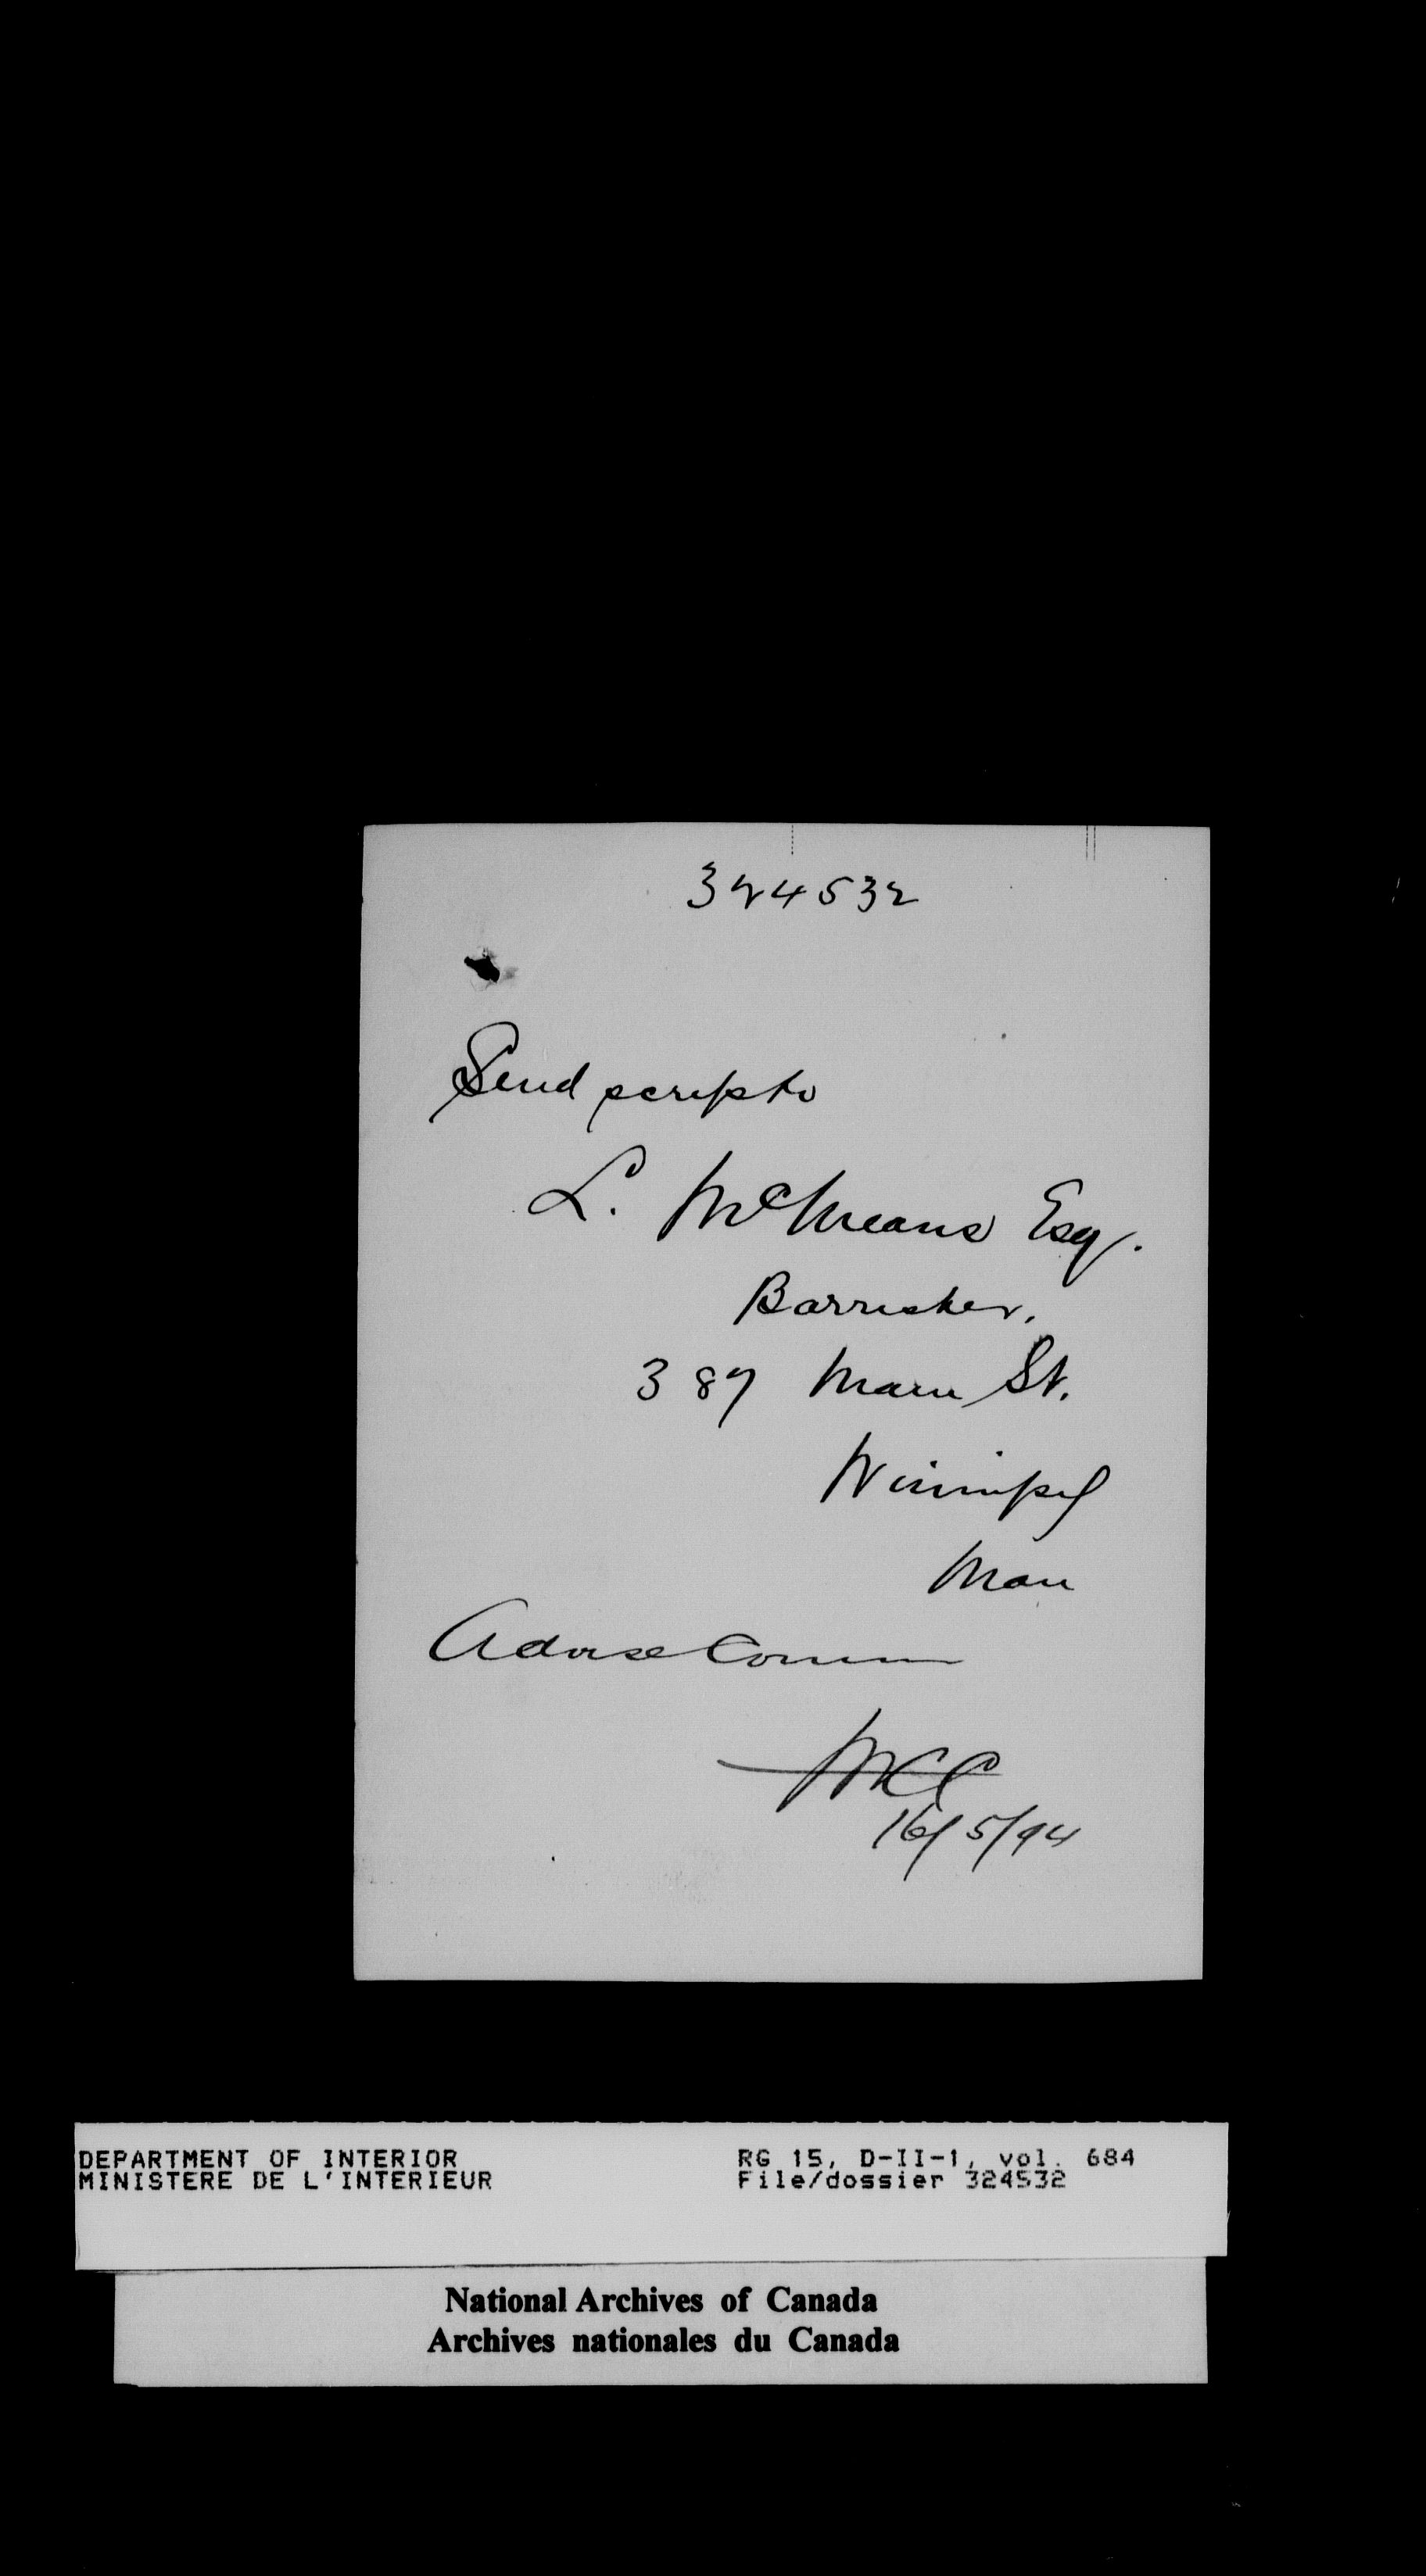 324532
Send scrip to
L. McMeans Esq.
Barrister,
387 Main St.
Winnipeg
Man
Advise Comm
16/5/94
DEPARTMENT OF INTERIOR
MINISTERE DE L'INTERIEUR
RG 15, D-II-1, vol. 684
File/dossier 324532
National Archives of Canada
Archives nationales du Canada